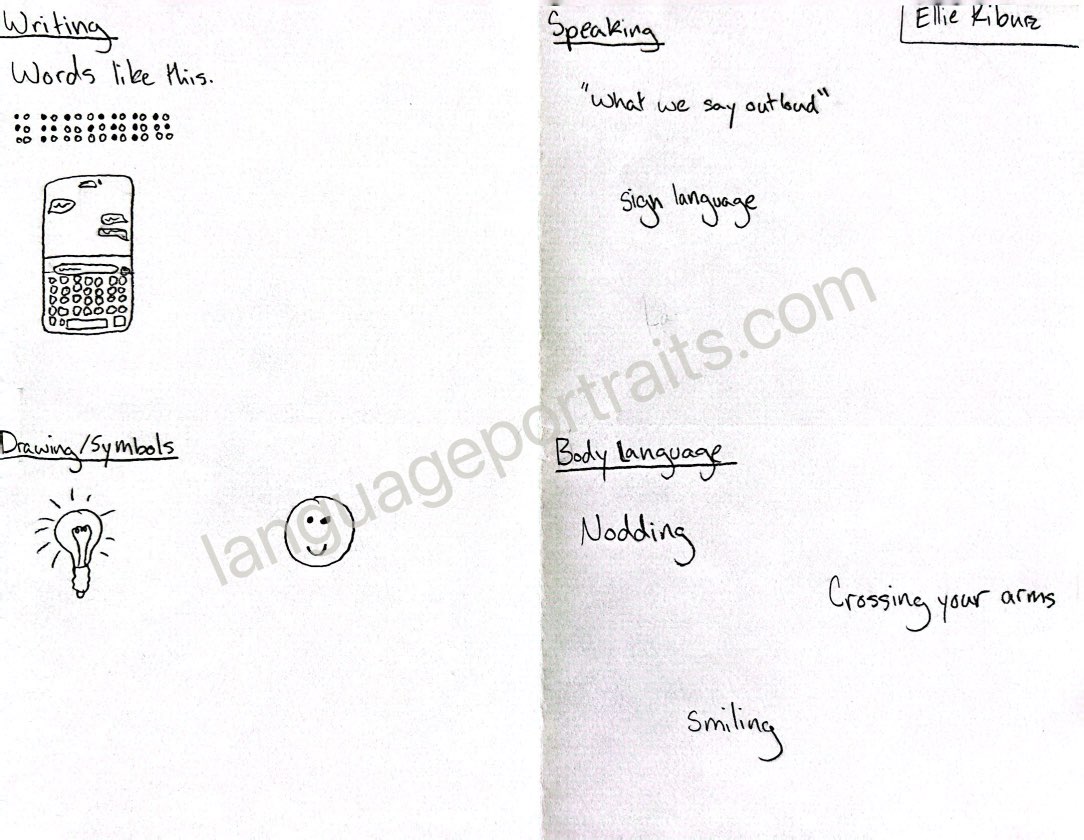 Writing
Words like this.
Speaking
Ellie Kiburz
"What we say outloud"
sign language
La
languageportraits.com
Drawing/Symbols
Body Language
Nodding
Crossing your arms
Smiling